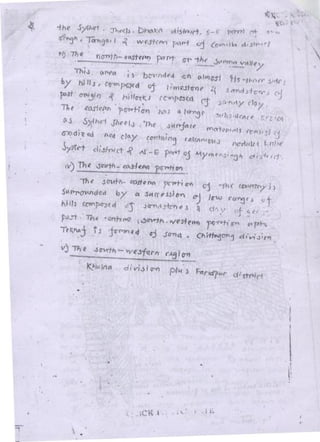 the Sylhet - Jheels. Dhaka district, S-E part of
singh, Tangail & western part of Comilla district
The north-eastern part or the Surma valley
This area is bounded on almost its three sides
by hills, composed of limestone & sandstones of
past origin & hillocks composed of sandy clay.
The eastern portion has a large subsidence
as Sylhet Jheels. The surface materials consist of
oxidized red clay containing calcareous nodules
Sylhet district & N-E part of Mymensingh district
iv) The south-eastern portion
The south-eastern portion of the country is
surrounded by a succession of low ranges of
hills composed of sandstones & clay of
past. The south-western portion upto
Teknaf is formed of sand. Chittagong division
v) The south-western region
Khulna division plus Faridpur district